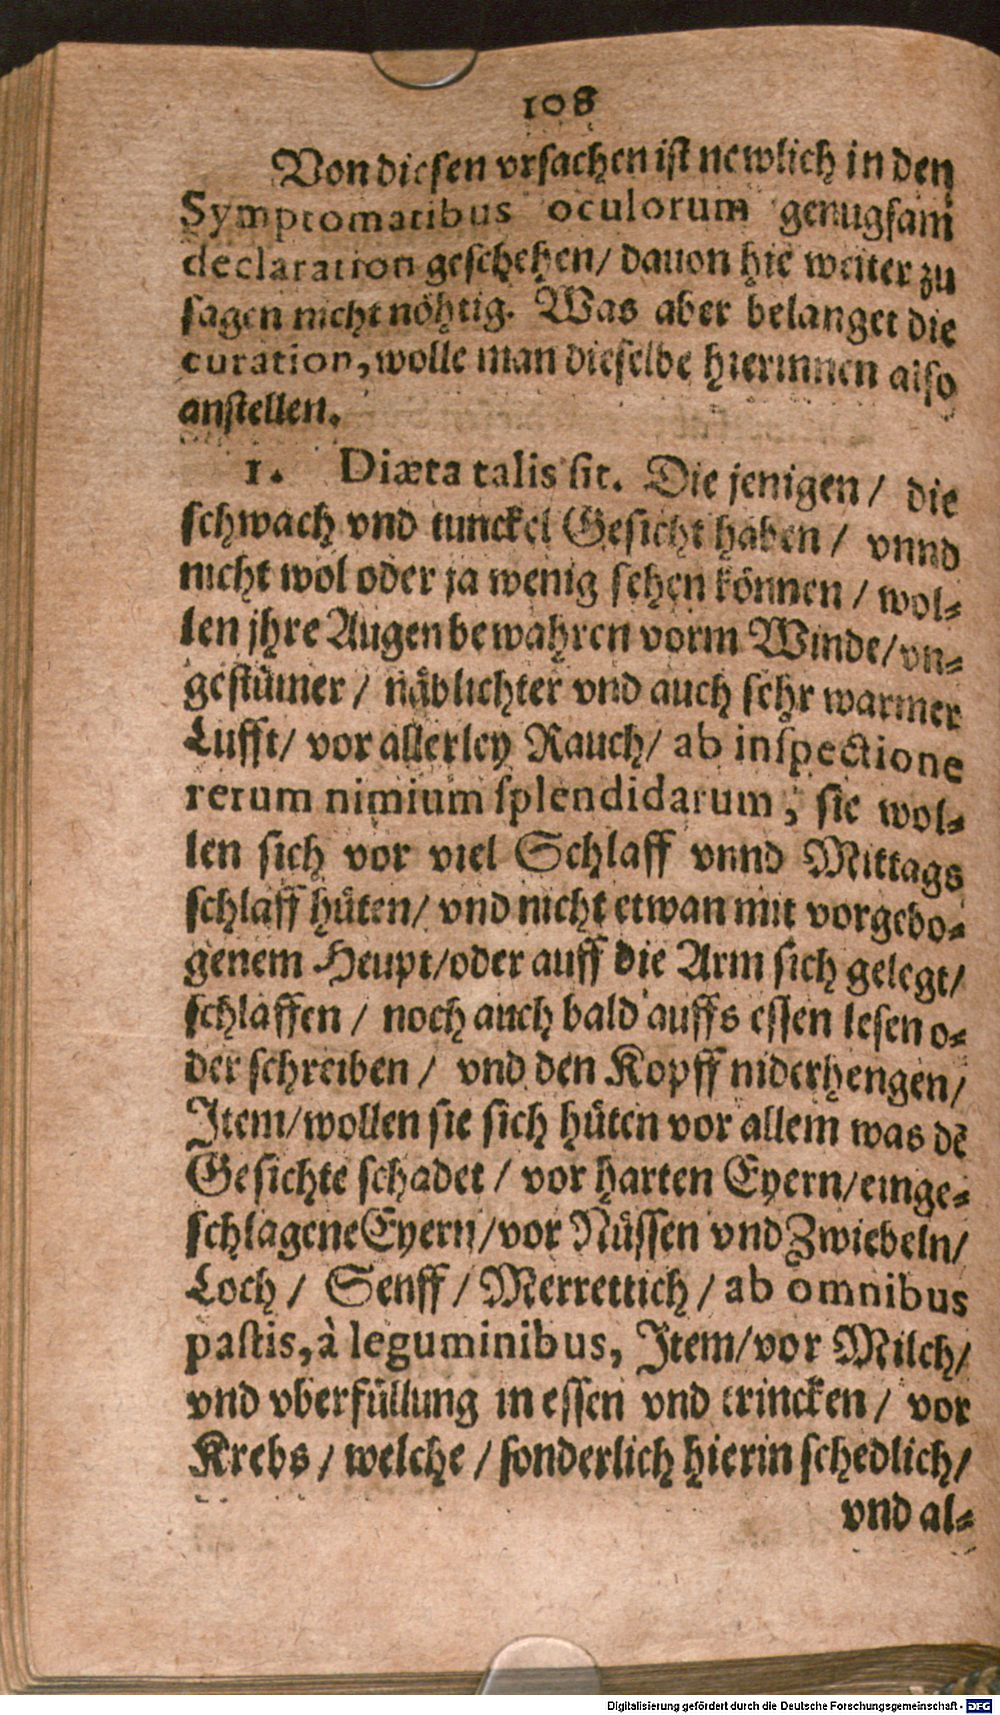 108
Von diesen vrsachen ist newlich in den
Symptomatibus oculorum genugsam
declaration geschehen/ dauon hie weiter zu
sagen nicht nöhtig. Was aber belanget die
curation, wolle man dieselbe hierinnen also
anstellen.
1. Diæta talis sit. Die jenigen/ die
schwach vnd tunckel Gesicht haben/ vnnd
nicht wol oder ja wenig sehen können/ wol-
len jhre Augen bewahren vorm Winde/ vn-
gestümer/ näblichter vnd auch sehr warmer
Lufft/ vor allerley Rauch/ ab inspectione
rerum nimium splendidarum, sie wol-
len sich vor viel Schlaff vnnd Mittags
schlaff hüten/ vnd nicht etwan mit vorgebo-
genem Heupt/ oder auff die Arm sich gelegt/
schlaffen/ noch auch bald auffs essen lesen o-
der schreiben/ vnd den Kopff niderhengen/
Item/ wollen sie sich hüten vor allem was dē
Gesichte schadet/ vor harten Eyern/ einge-
schlagene Eyern/ vor Nüssen vnd Zwiebeln/
Loch/ Senff/ Merrettich/ ab omnibus
pastis, à leguminibus, Item/ vor Milch/
vnd vberfüllung in essen vnd trincken/ vor
Krebs/ welche/ sonderlich hierin schedlich/
vnd al-
Digitalisierung gefördert durch die Deutsche Forschungsgemeinschaft - DFG